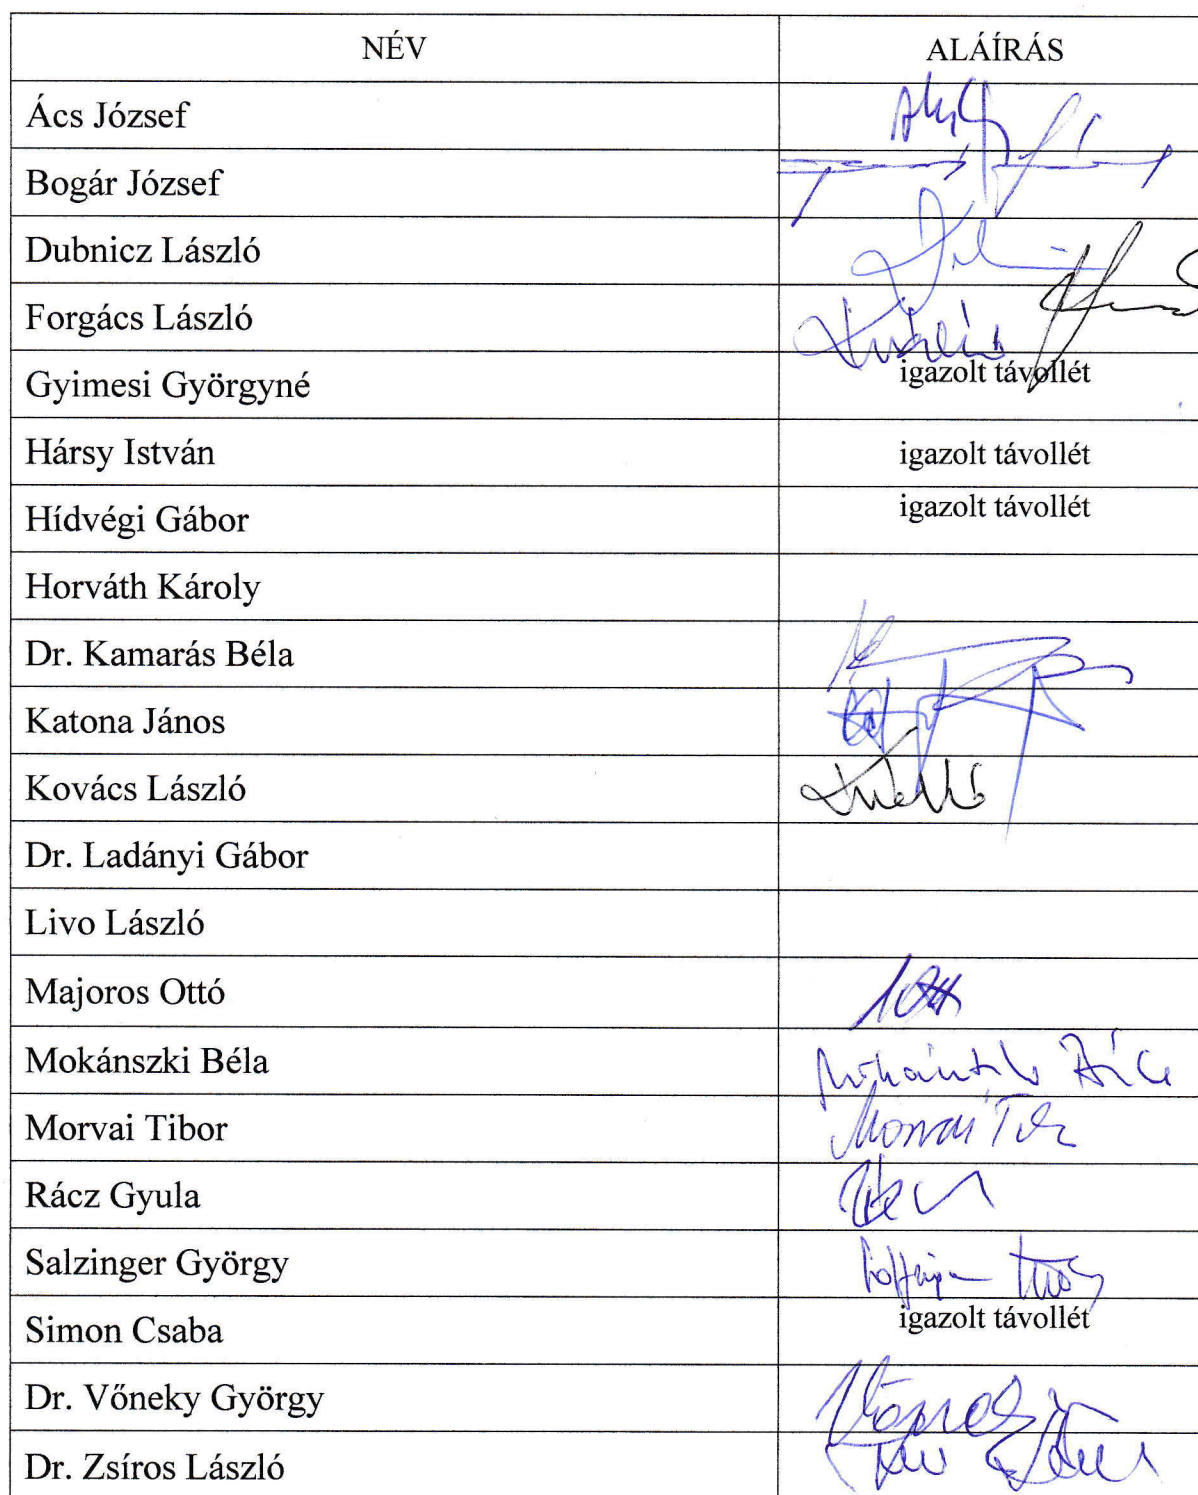 NÉV ALÁÍRÁS
Ács József
Bogár József
Dubnicz László
Forgács László
Gyimesi Györgyné igazolt távollét
Hársy István igazolt távollét
Hídvégi Gábor igazolt távollét
Horváth Károly
Dr. Kamarás Béla
Katona János
Kovács László
Dr. Ladányi Gábor
Livo László
Majoros Ottó
Mokánszki Béla
Morvai Tibor Morvai Tibor
Rácz Gyula
Salzinger György
Simon Csaba igazolt távollét
Dr. Vőneky György
Dr. Zsíros László